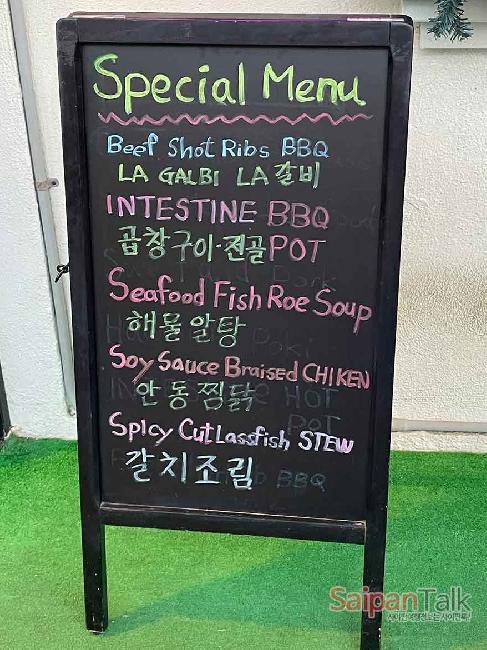 Special Menu
Beef Shot Ribs BBQ
LA GALBI LA 갈비
INTESTINE BBQ
곱창구이·전골 POT
Seafood Fish Roe Soup
해물알탕
Soy Sauce Braised CHIKEN
안동찜닭
Spicy Cutlassfish STEW
갈치조림
SaipanTalk